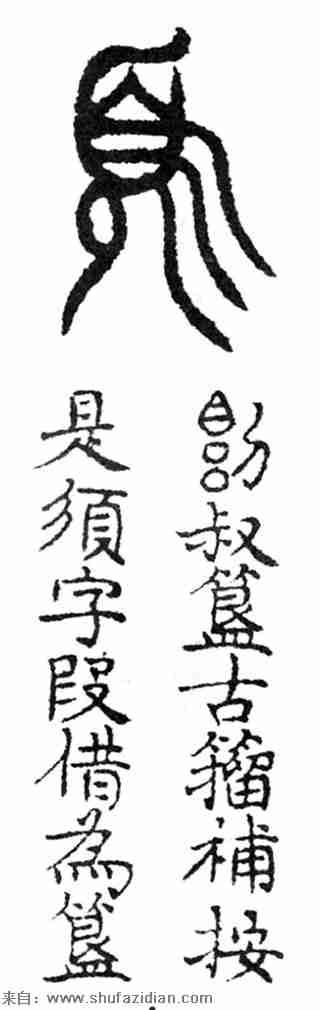 須
叔簋古籀補按
是須字叚借為簋
来自：www.shufazidian.com